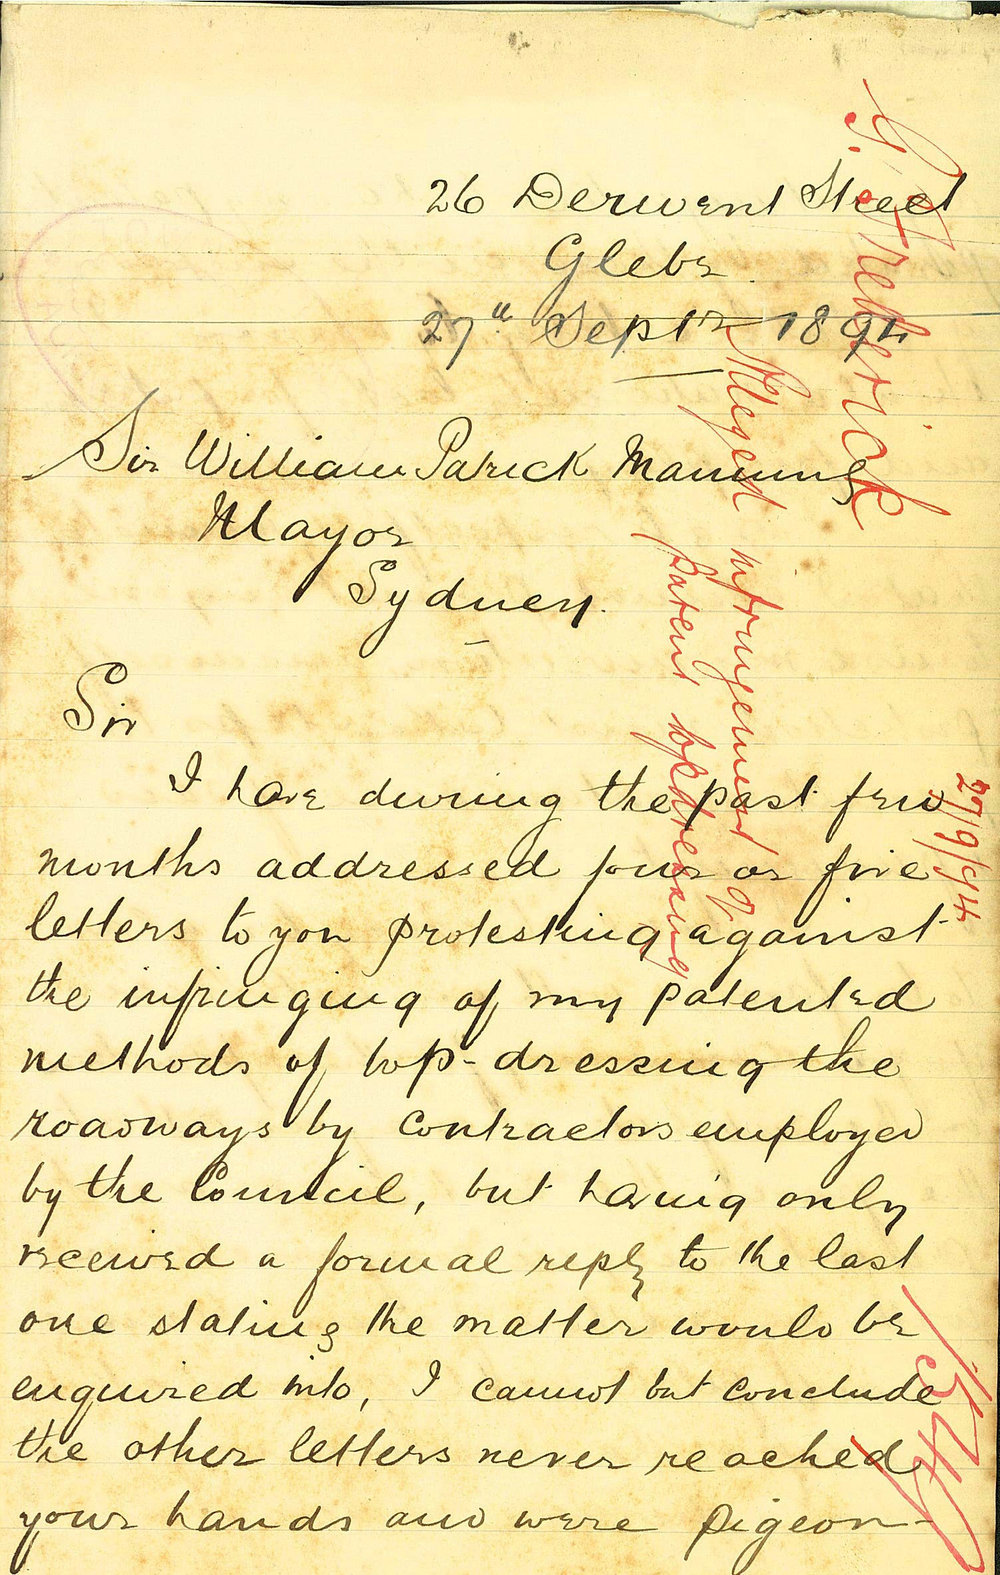 26 Derwent Street
Glebe
27th Septr 1894
Sir William Patrick Manning
Mayor
Sydney.
Sir
I have during the past few
months addressed four or five
letters to you protesting against
the infringing of my patented
methods of top-dressing the
roadways by contractors employed
by the Council, but having only
received a formal reply to the last
one stating the matter would be
enquired into, I cannot but conclude
the other letters never reached
your hands and were pigeon-
Alleged infringement of
patent topdressing
27/9/94